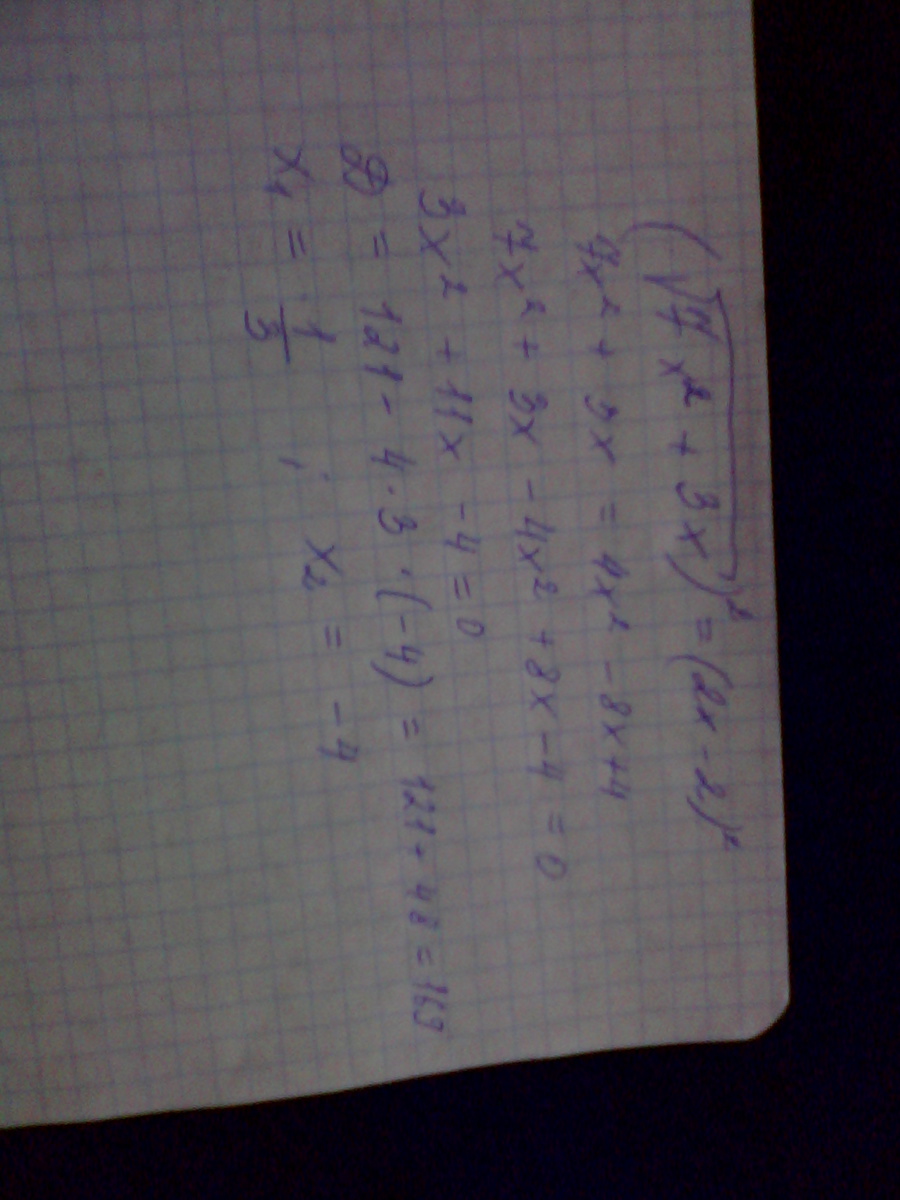 (√7x² + 3x)² = (2x - 2)²
7x² + 3x = 4x² - 8x + 4
7x² + 3x - 4x² + 8x - 4 = 0
3x² + 11x - 4 = 0
D = 121 - 4 · 3 · (-4) = 121 + 48 = 169
x₁ = 1/3 ; x₂ = -4